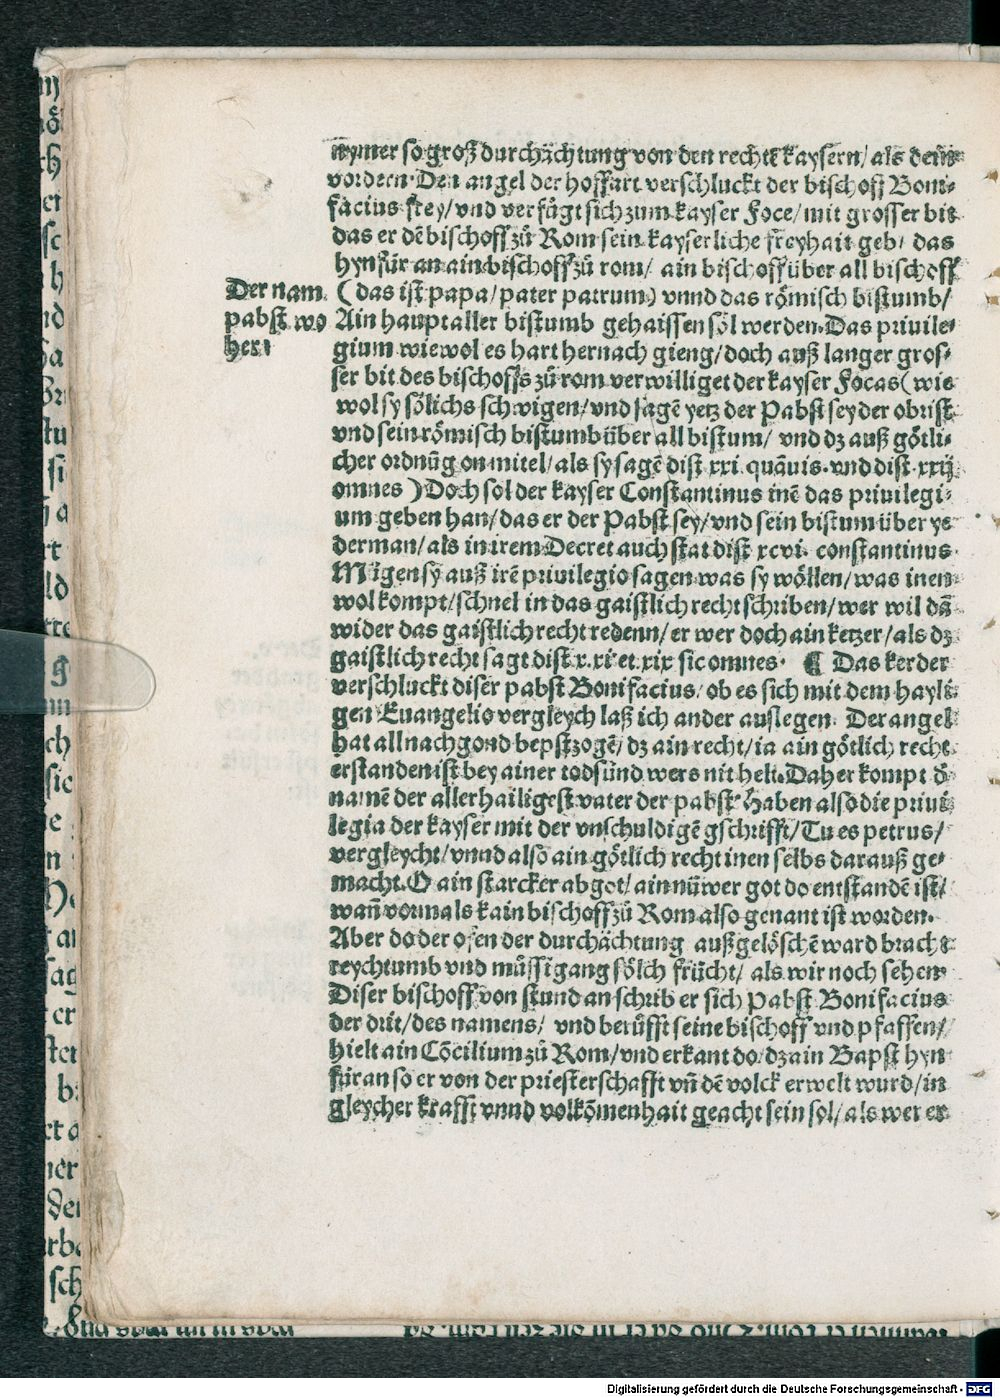 nymer so groß durchächtung von den rechtē kaysern/ als deñ
vordren. Den angel der hoffart verschluckt der bischoff Boni⸗
facius frey/ vnd verfügt sich zum kayser Foce/ mit grosser bit
das er dē bischoff zů Rom sein kayserliche freyhait geb/ das
hynfür an ain bischoff zů rom/ ain bischoff über all bischoff
Der nam
pabst wo
her.
(das ist papa/ pater patrum) vnnd das römisch bistumb/
Ain haupt aller bistumb gehaissen söl werden. Das priuile⸗
gium wiewol es hart hernach gieng/ doch auß langer gros⸗
ser bit des bischoffs zů rom verwilliget der kayser Focas (wie
wol sy sölichs schwigen/ vnd sagē yetz der Pabst sey der obrist
vnd sein römisch bistumb über all bistum/ vnd dz auß götli⸗
cher ordnūg on mitel/ als sy sagē dist xxi. quāuis. vnd dist. xxij
omnes) Doch sol der kayser Constantinus inē das priuilegi⸗
um geben han/ das er der Pabst sey/ vnd sein bistum über ye
derman/ als in irem Decret auch stat dist xcvi. constantinus.
Mügen sy auß irē priuilegio sagen was sy wöllen/ was inen
wol kompt/ schnel in das gaistlich recht schriben/ wer wil dā
wider das gaistlich recht redenn/ er wer doch ain ketzer/ als dz
gaistlich recht sagt dist x. xi et xix sic omnes. ¶ Das ker der
verschluckt diser pabst Bonifacius/ ob es sich mit dem hayli⸗
gen Euangelio vergleych laß ich ander auslegen. Der angel
hat all nachgond bepst zogē/ dz ain recht/ ia ain götlich recht
erstanden ist bey ainer todsünd wers nit helt. Daher kompt ď
namē der allerhailigest vater der pabst. Haben also die priui
legia der kayser mit der vnschuldigē gschrifft/ Tu es petrus/
vergleycht/ vnnd also ain götlich recht inen selbs darauß ge⸗
macht. O ain starcker abgot/ ain nüwer got do entstandē ist/
wañ vormals kain bischoff zů Rom also genant ist worden.
Aber do der ofen der durchächtung außgelöschē ward bracht
reychtumb vnd müssigang sölch frücht/ als wir noch sehen
Diser bischoff von stund an schrib er sich Pabst Bonifacius
der drit/ des namens/ vnd berüfft seine bischoff vnd pfaffen/
hielt ain Cōcilium zů Rom/ vnd erkant do/ dz ain Bapst hyn
für an so er von der priesterschafft vñ dē volck erwelt wurd/ in
gleycher krafft vnnd volkōmenhait geacht sein sol/ als wer er
Digitalisierung gefördert durch die Deutsche Forschungsgemeinschaft - DFG